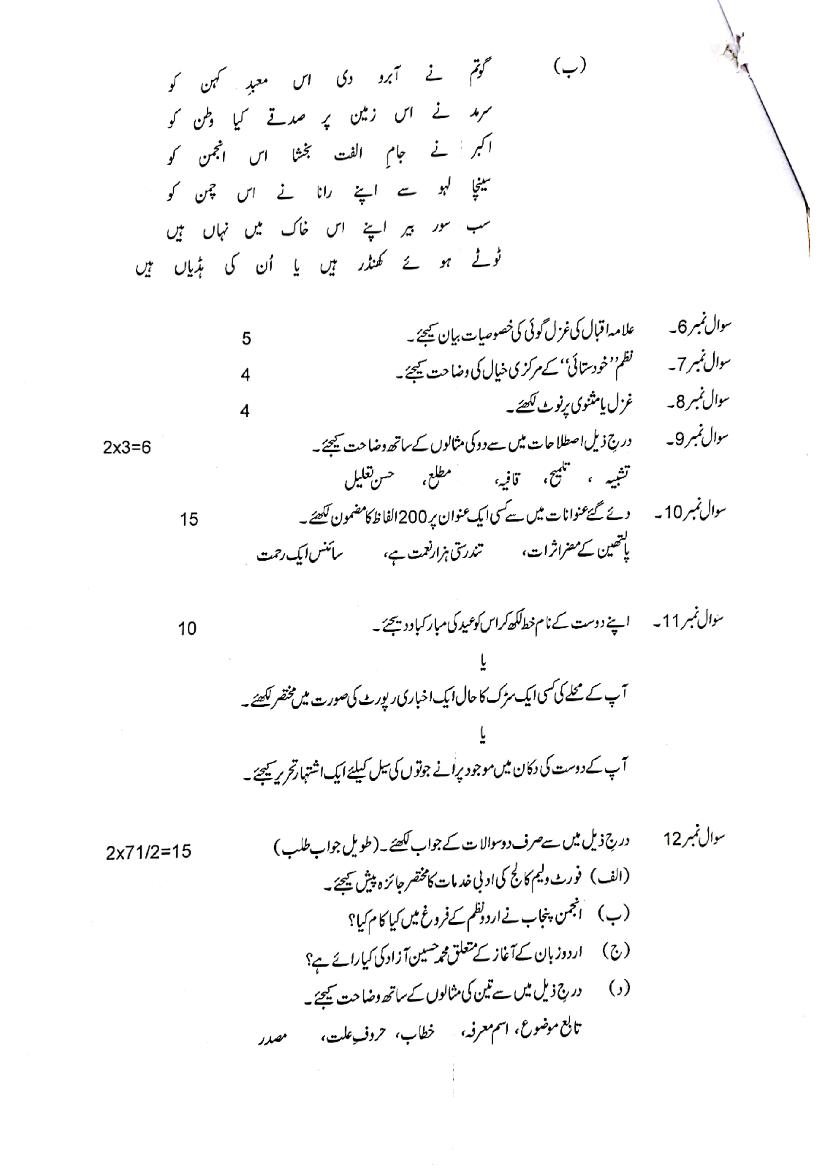 (ب) گوتم نے آبرو دی اس معبدِ کہن کو
سرمد نے اس زمین پر صدقے کیا وطن کو
اکبر نے جامِ الفت بخشا اس انجمن کو
سینچا لہو سے اپنے رانا نے اس چمن کو
سب سور بیر اپنے اس خاک میں نہاں ہیں
ٹوٹے ہوئے کھنڈر ہیں یا اُن کی ہڈیاں ہیں
سوال نمبر 6۔ علامہ اقبال کی غزل گوئی کی خصوصیات بیان کیجئے۔ 5
سوال نمبر 7۔ نظم ’’خودستائی‘‘ کے مرکزی خیال کی وضاحت کیجئے۔ 4
سوال نمبر 8۔ غزل یا مثنوی پر نوٹ لکھئے۔ 4
سوال نمبر 9۔ درج ذیل اصطلاحات میں سے دو کی مثالوں کے ساتھ وضاحت کیجئے۔ 2x3=6
تشبیہ ، تلمیح، قافیہ، مطلع، حسن تعلیل
سوال نمبر 10۔ دئے گئے عنوانات میں سے کسی ایک عنوان پر 200 الفاظ کا مضمون لکھئے۔ 15
پالتھین کے مضر اثرات، تندرستی ہزار نعمت ہے، سائنس ایک رحمت
سوال نمبر 11۔ اپنے دوست کے نام خط لکھ کر اس کو عید کی مبارکباد دیجئے۔ 10
یا
آپ کے محلے کی کسی ایک سڑک کا حال ایک اخباری رپورٹ کی صورت میں مختصر لکھئے۔
یا
آپ کے دوست کی دکان میں موجود پرانے جوتوں کی سیل کیلئے ایک اشتہار تحریر کیجئے۔
سوال نمبر 12 درج ذیل میں سے صرف دو سوالات کے جواب لکھئے۔ (طویل جواب طلب) 2x71/2=15
(الف) فورٹ ولیم کالج کی ادبی خدمات کا مختصر جائزہ پیش کیجئے۔
(ب) انجمن پنجاب نے اردو نظم کے فروغ میں کیا کام کیا؟
(ج) اردو زبان کے آغاز کے متعلق محمد حسین آزاد کی کیا رائے ہے؟
(د) درج ذیل میں سے تین کی مثالوں کے ساتھ وضاحت کیجئے۔
تابع موضوع، اسم معرفہ، خطاب، حروفِ علت، مصدر